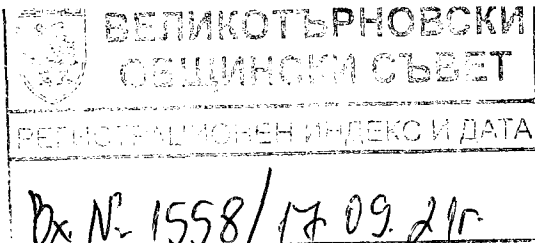 ВЕЛИКОТЪРНОВСКИ
ОБЩИНСКИ СЪВЕТ
РЕГИСТРАЦИОНЕН ИНДЕКС И ДАТА
Вх. № 1558/17.09.21г.